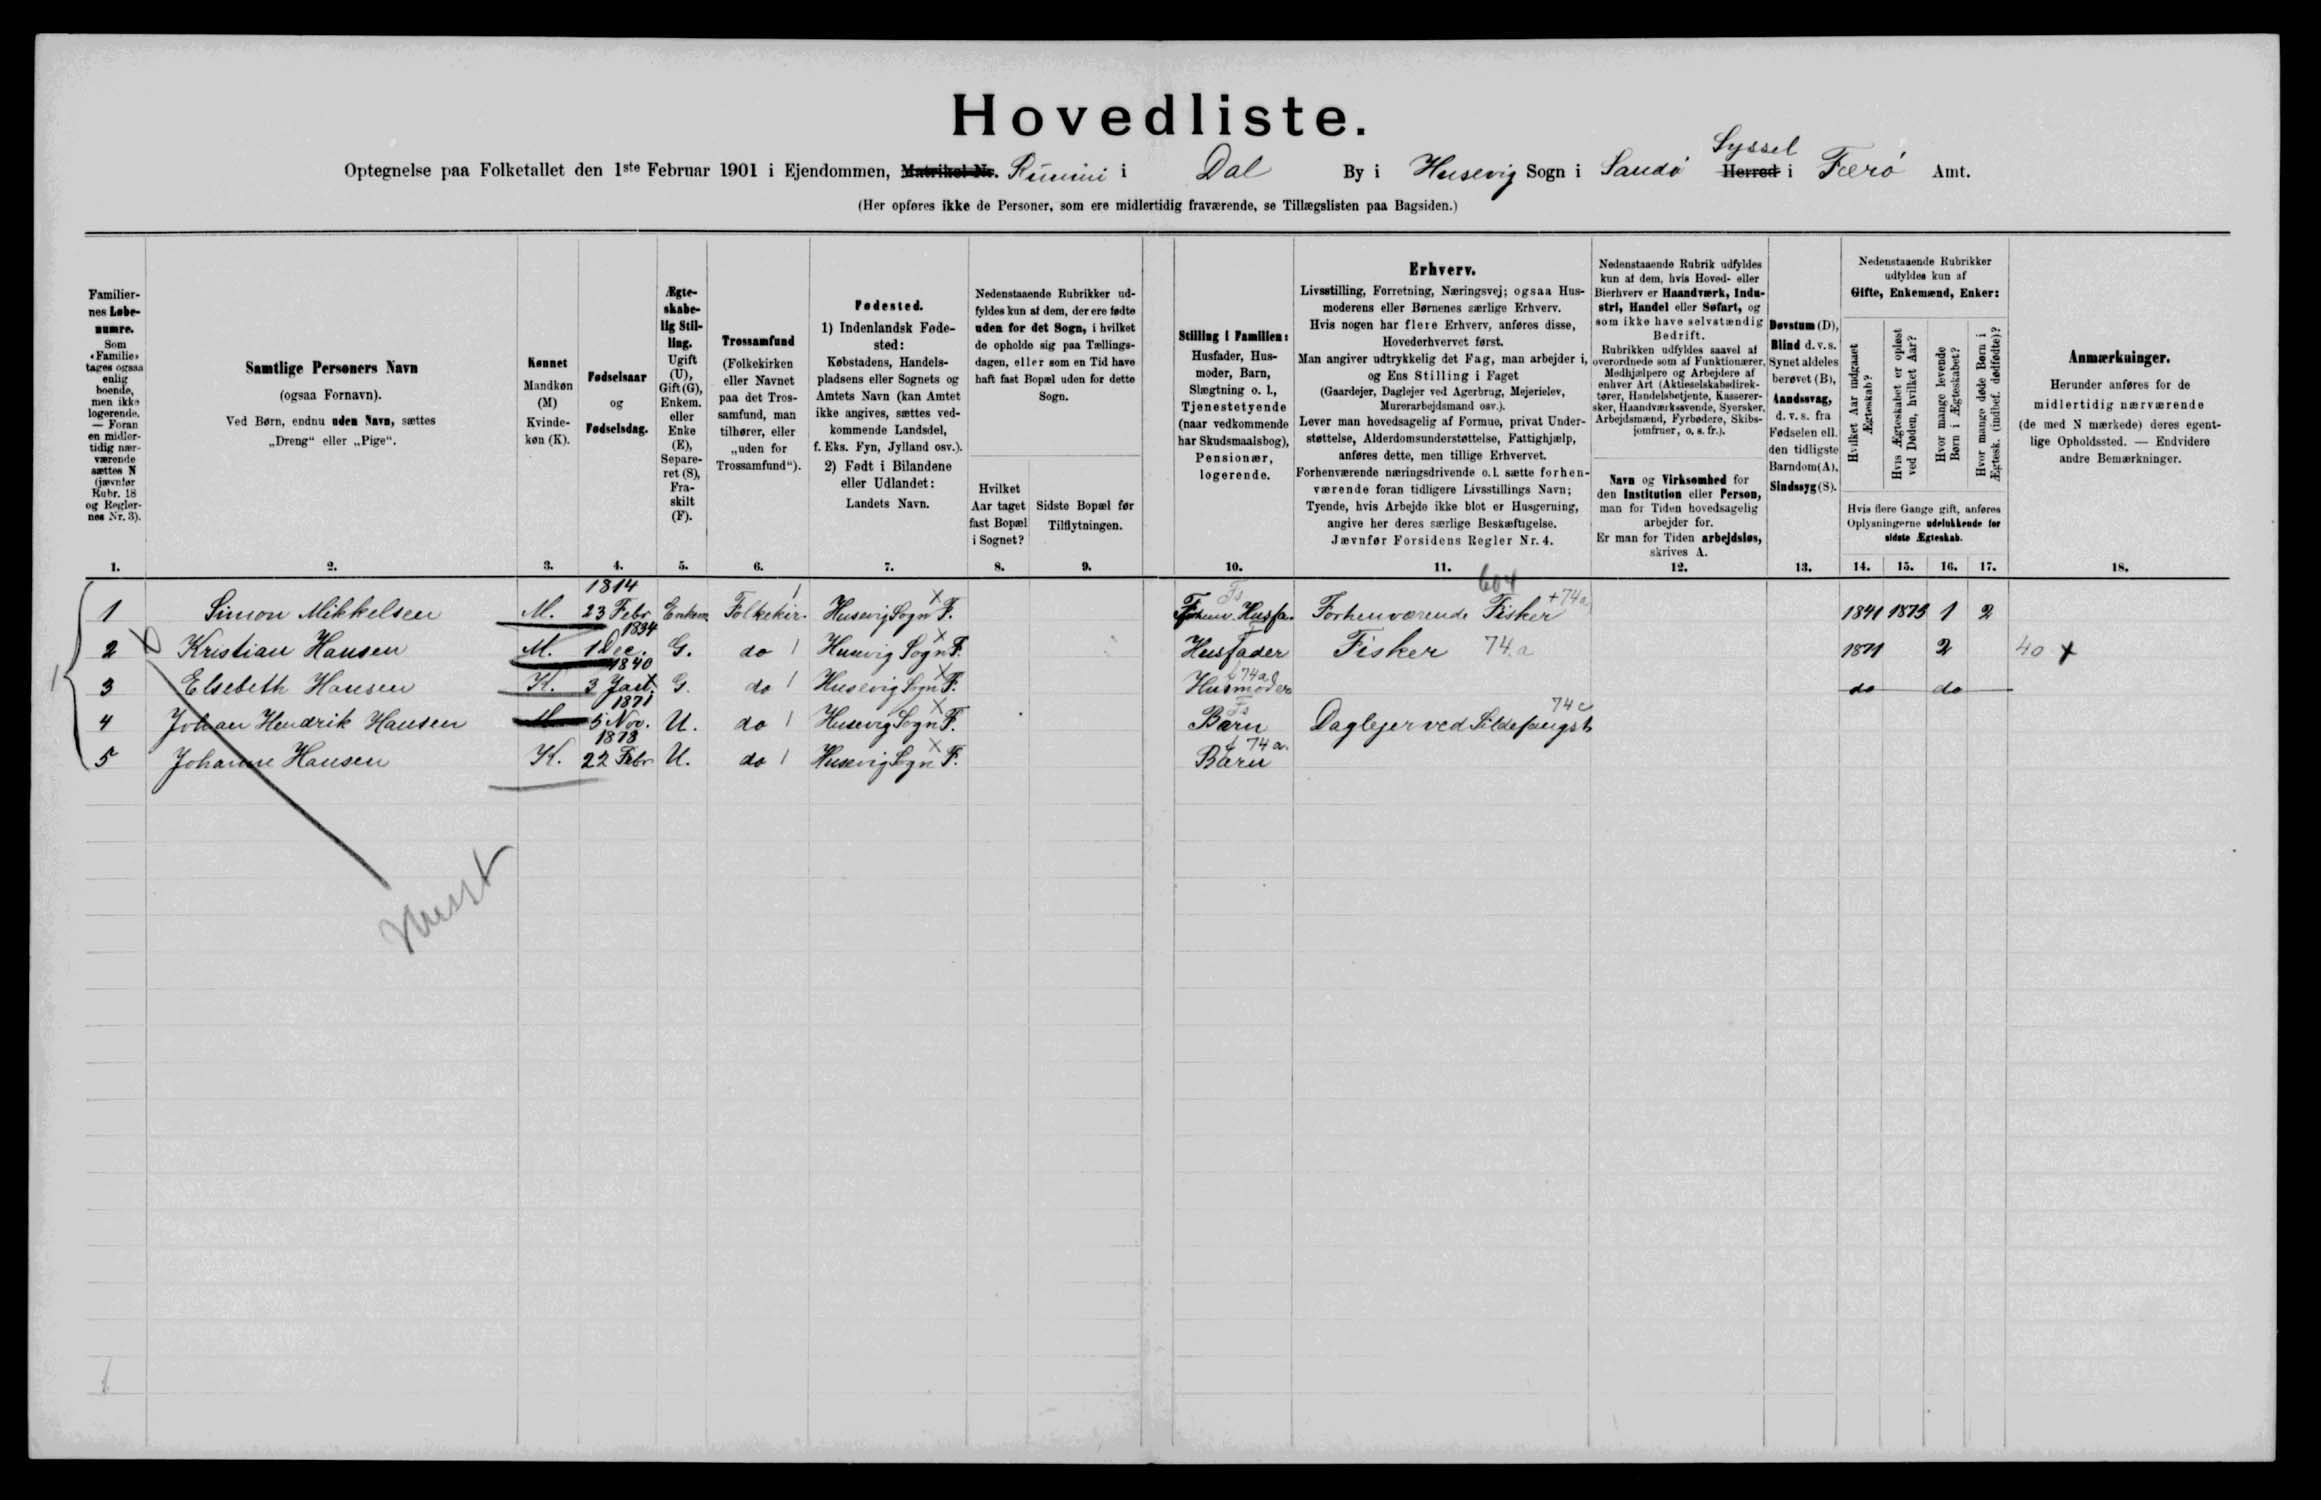 Hovedliste.
Syssel
Optegnelse paa Folketallet den 1ste Februar 1901 i Ejendommen, Matrikel-Nr. i Dal By i Husevig Sogn i Sandø Herred i Færø Amt.
(Her opføres ikke de Personer, som ere midlertidig fraværende, se Tillægslisten paa Bagsiden.)
Familiernes Løbenumre.
Som «Familie» tages ogsaa enlig boende, men ikke logerende. — Foran en midlertidig nærværende sættes N (jævnfør Rubr. 18 og Reglernes Nr. 3).
Samtlige Personers Navn
(ogsaa Fornavn).
Ved Børn, endnu uden Navn, sættes
„Dreng“ eller „Pige“.
Kønnet
Mandkøn (M)
Kvindekøn (K).
Fødselsaar
og
Fødselsdag.
Ægteskabelig Stilling.
Ugift (U), Gift (G), Enkem. eller Enke (E), Separeret (S), Fraskilt (F).
Trossamfund
(Folkekirken eller Navnet paa det Trossamfund, man tilhører, eller „uden for Trossamfund“).
Fødested.
1) Indenlandsk Fødested:
Købstadens, Handelspladsens eller Sognets og Amtets Navn (kan Amtet ikke angives, sættes vedkommende Landsdel, f. Eks. Fyn, Jylland osv.).
2) Født i Bilandene eller Udlandet:
Landets Navn.
Nedenstaaende Rubrikker udfyldes kun af dem, der ere fødte uden for det Sogn, i hvilket de opholde sig paa Tællingsdagen, eller som en Tid have haft fast Bopæl uden for dette Sogn.
Hvilket Aar taget fast Bopæl i Sognet?
Sidste Bopæl før Tilflytningen.
Stilling i Familien:
Husfader, Husmoder, Barn, Slægtning o. l., Tjenestetyende (naar vedkommende har Skudsmaalsbog), Pensionær, logerende.
Erhverv.
Livsstilling, Forretning, Næringsvej; ogsaa Husmoderens eller Børnenes særlige Erhverv.
Hvis nogen har flere Erhverv, anføres disse, Hovederhvervet først.
Man angiver udtrykkelig det Fag, man arbejder i, og Ens Stilling i Faget
(Gaardejer, Daglejer ved Agerbrug, Mejerielev, Murerarbejdsmand osv.).
Lever man hovedsagelig af Formue, privat Understøttelse, Alderdomsunderstøttelse, Fattighjælp, anføres dette, men tillige Erhvervet.
Forhenværende næringsdrivende o. l. sætte forhenværende foran tidligere Livsstillings Navn;
Tyende, hvis Arbejde ikke blot er Husgerning, angive her deres særlige Beskæftigelse.
Jævnfør Forsidens Regler Nr. 4.
Nedenstaaende Rubrik udfyldes kun af dem, hvis Hoved- eller Bierhverv er Haandværk, Industri, Handel eller Søfart, og som ikke have selvstændig Bedrift.
Rubrikken udfyldes saavel af overordnede som af Funktionærer, Medhjælpere og Arbejdere af enhver Art (Aktieselskabsdirektører, Handelsbetjente, Kasserersker, Haandværkssvende, Syersker, Arbejdsmænd, Fyrbødere, Skibsjomfruer, o. s. fr.).
Navn og Virksomhed for den Institution eller Person, man for Tiden hovedsagelig arbejder for.
Er man for Tiden arbejdsløs, skrives A.
Døvstum (D), Blind d. v. s. Synet aldeles berøvet (B), Aandssvag, d. v. s. fra Fødselen ell. den tidligste Barndom (A), Sindssyg (S).
Nedenstaaende Rubrikker udfyldes kun af
Gifte, Enkemænd, Enker:
Hvilket Aar indgaaet Ægteskab?
Hvis Ægteskabet er opløst ved Døden, hvilket Aar?
Hvor mange levende Børn i Ægteskabet?
Hvor mange døde Børn i Ægtesk. (indbef. dødfødte)?
Hvis flere Gange gift, anføres Oplysningerne udelukkende for sidste Ægteskab.
Anmærkninger.
Herunder anføres for de midlertidig nærværende (de med N mærkede) deres egentlige Opholdssted. — Endvidere andre Bemærkninger.
1. 2. 3. 4. 5. 6. 7. 8. 9. 10. 11. 12. 13. 14. 15. 16. 17. 18.
1814 604
1 Simon Mikkelsen M. 23 Febr Enkem. Folkekir. Husevig Sogn F. Forhenv. Husfa. Forhenværende Fisker +74a 1841 1873 1 2
1834
2 Kristian Hansen M. 1 Dec. G. do Husevig Sogn F. Husfader Fisker 74.a 1871 2 40 x
1840 74a
3 Elsebeth Hansen K. 3 Jan. G. do Husevig Sogn F. Husmoder do do
1871 74c
4 Johan Hendrik Hansen M. 5 Nov. U. do Husevig Sogn F. Barn Daglejer ved Sildefangst
1878 74a.
5 Johanne Hansen K. 22 Febr U. do Husevig Sogn F. Barn